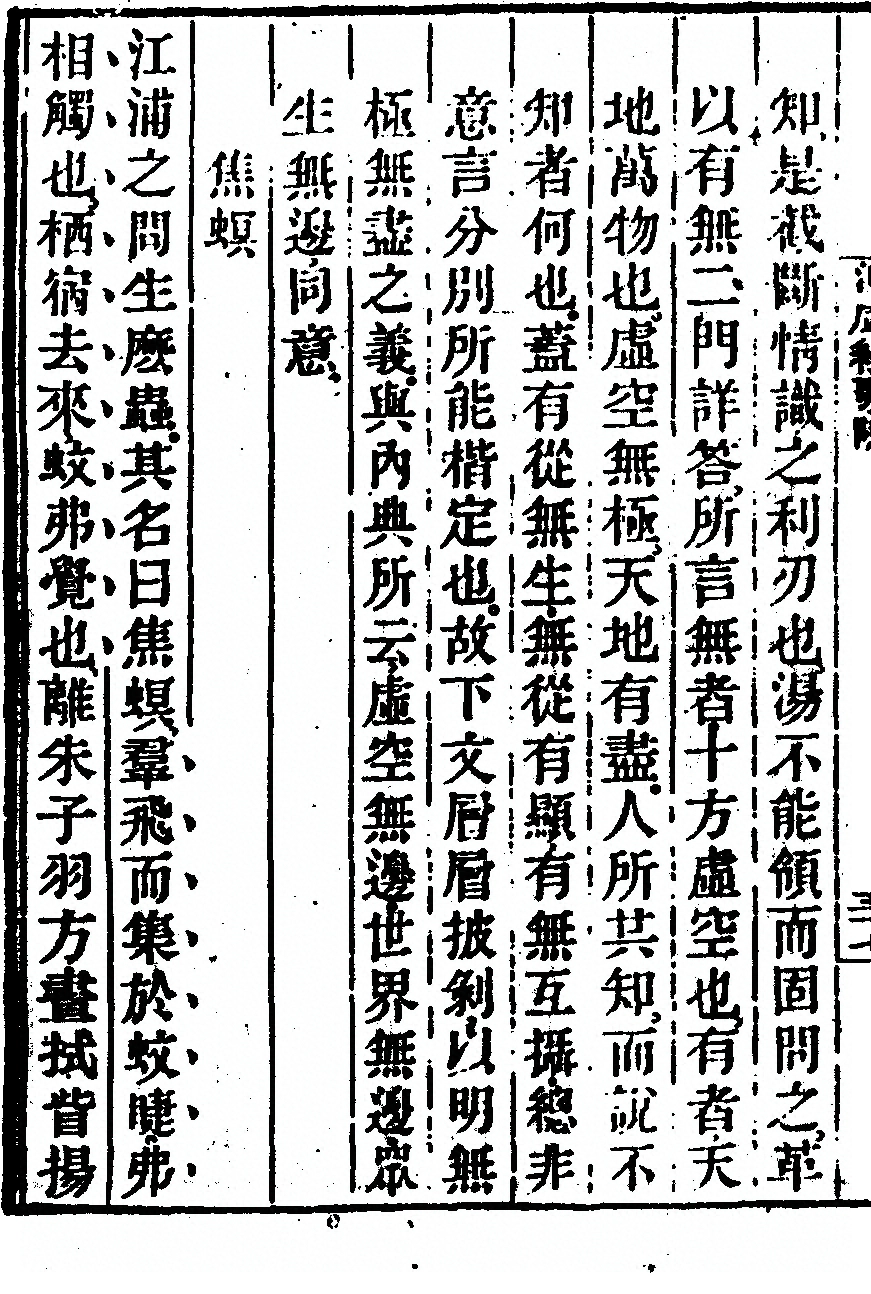 知是截斷情識之利刃也湯不能領而固問之革
以有無二門詳答所言無者十方虛空也有者天
地萬物也虛空無極天地有盡人所共知而說不
知者何也蓋有從無生無從有顯有無互攝總非
意言分別所能楷定也故下文層層披剝以明無
極無盡之義與內典所云虛空無邊世界無邊眾
生無邊同意
焦螟
江浦之間生麽蟲其名曰焦螟羣飛而集於蚊睫弗
相觸也栖宿去來蚊弗覺也離朱子羽方晝拭眥揚